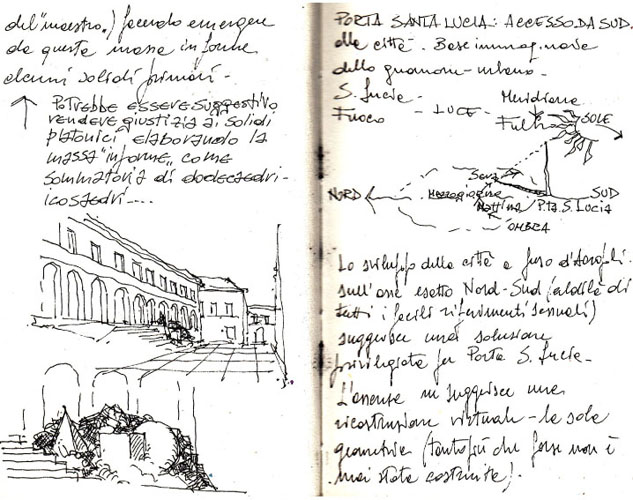 del "maestro") facendo emergere
da questa massa informe
alcuni solidi primari -
Potrebbe essere suggestivo
rendere giustizia ai solidi
platonici elaborando la
massa "informe" come
sommatoria di dodecaedri-
icosaedri....
PORTA SANTA LUCIA: ACCESSO DA SUD.
alla città. Base immaginaria
dello gnomone-urbano.
S. Lucia - LUCE - Meridiana
Fuoco
SOLE
Sera
NORD
Mezzogiorno
SUD
Mattina
P.ta S. LUCIA
OMBRA
Lo sviluppo della città a fuso d'Acropoli
sull'asse esatto Nord-Sud (aldilà di
tutti i facili riferimenti sessuali)
suggerisce una soluzione
privilegiata per Porta S. Lucia -
L'assenza mi suggerisce una
ricostruzione virtuale - la sola
geometria (tanto più che forse non è
mai stata costruita).